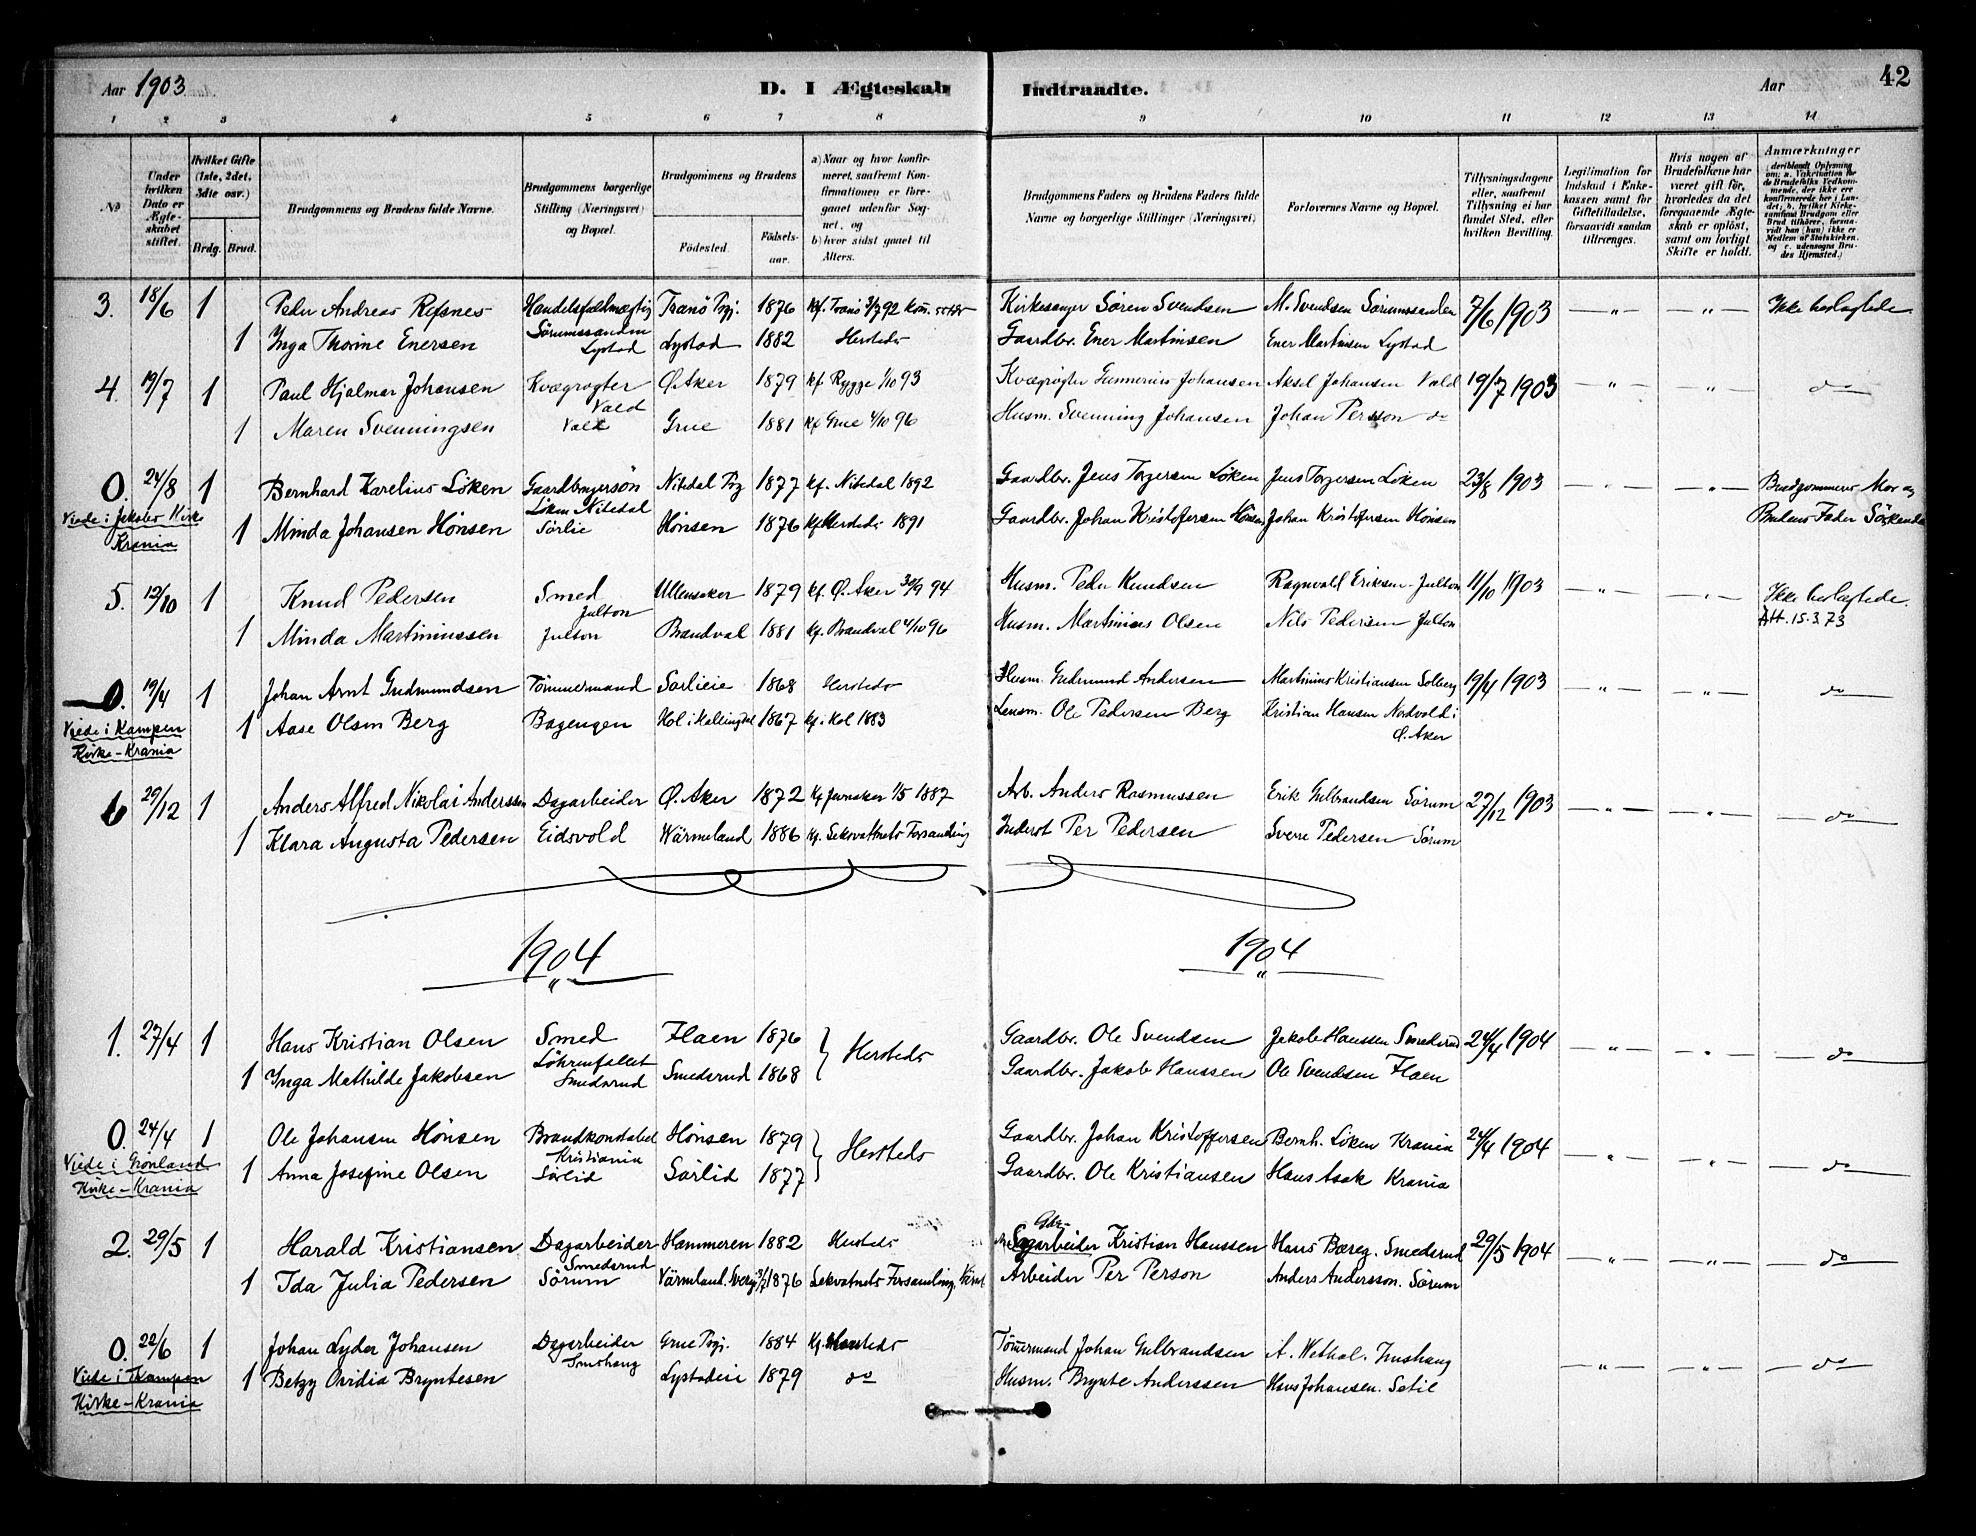 Aar 1903. D. I Ægteskab Indtraadte. Aar 42
1 2 3 4 5 6 7 8 9 10 11 12 13 14
No
Under hvilken Dato er Ægteskabet stiftet.
Hvilket Gifte (1ste, 2det, 3die osv.)
Brdg. Brud.
Brudgommens og Brudens fulde Navne.
Brudgommens borgerlige Stilling (Næringsvei) og Bopæl.
Brudgommens og Brudens
Fødested. Fødselsaar.
a) Naar og hvor konfirmeret, saafremt Konfirmationen er foregaaet udenfor Sognet, og
b) hvor sidst gaaet til Alters.
Brudgommens Faders og Brudens Faders fulde Navne og borgerlige Stillinger (Næringsvei)
Forlovernes Navne og Bopæl.
Tillysningsdagene eller, saafremt Tillysning ei har fundet Sted, efter hvilken Bevilling.
Legitimation for Indskud i Enkekassen samt for Giftetilladelse, forsaavidt saadan tiltrænges.
Hvis nogen af Brudefolkene har været gift før, hvorledes da det foregaaende Ægteskab er opløst, samt om lovligt Skifte er holdt.
Anmærkninger
3. 18/6 1 Peder Andreas Refsnes Handelsfuldmægtig Tranö Pgj. 1876 kf. Tranö 3/7 92 Kirkesanger Sören Svendsen M. Svendsen Sörumssanden 7/6 1903 — " — — " — Ikke beslægtede
Sörumssanden
1 Inga Thorine Enersen Lystad Lystad 1882 Hersteds Gaardbr. Ener Martinsen Ener Martinsen Lystad
4. 19/7 1 Paul Hjalmar Johansen Kvægrögter Ö. Aker 1879 kf Rygge 1/10 93 Kvægrögter Gunnerius Johansen Aksel Johansen Vald 19/7 1903 — " — — " — do
Vald
1 Maren Svenningsen Vald Grue 1881 kf Grue 4/10 96 Husm. Svenning Johansen Johan Persson do
0. 24/8 1 Bernhard Karelius Löken Gaardbrugersön Nitedal Pg 1877 kf. Nitedal 1892 Gaardbr. Jens Torgersen Löken Jens Torgersen Löken 23/8 1903 — " — — " — Brudgommens Mor og
Viede i Jakobs Kirke Krania
Löken Nitedal
1 Minda Johansen Hönsen Sörlie Hönsen 1876 kf Hersteds 1891 Gaardbr. Johan Kristofersen Hönsen Johan Kristofersen Hönsen Brudens Fader Söskende
5. 12/10 1 Knud Pedersen Smed Ullensaker 1879 kf. Ö. Aker 30/9 94 Husm. Peder Knudsen Ragnvald Eriksen Julton 11/10 1903 — " — — " — Ikke beslægtede.
Julton
1 Minda Martiniussen Julton Brandval 1881 kf. Brandval 4/10 96 Husm. Martinius Olsen Nils Pedersen Julton Att. 15.3.73
0. 19/4 1 Johan Arnt Gudmundsen Tömmermand Sörlieie 1868 Hersteds Husm. Gudmund Andersen Martinius Kristiansen Solberg 19/4 1903 — " — — " — do
Viede i Kampen Kirke - Krania
1 Aase Olsen Berg Bagengen Hol i Hallingdal 1867 kf. Hol 1883 Lensm. Ole Pedersen Berg Kristian Hansen Nordvold i
Ö. Aker
6 29/12 1 Anders Alfred Nikolai Anderssen Dagarbeider Ö. Aker 1872 Kf Jevnaker 1/5 1887 Arb. Anders Rasmussen Erik Gulbrandsen Sörum 27/12 1903 — " — — " — do
1 Klara Augusta Pedersen Eidsvold Wärmeland 1886 kf. Sekvattnets Forsamling Inderst Per Pedersen Sverre Pedersen Sörum
1904 1904
1. 27/4 1 Hans Kristian Olsen Smed Flaen 1876 } Hersteds Gaardbr. Ole Svendsen Jakob Hanssen Smedsrud 24/4 1904 — " — — " — do
Smedsrud
1 Inga Mathilde Jakobsen Smedsrud 1868 Gaardbr. Jakob Hanssen Ole Svendsen Flaen
0. 24/4 1 Ole Johansen Hönsen Brandkonstabel Hönsen 1879 } Hersteds Gaardbr. Johan Kristoffersen Bernh. Löken Krania 24/4 1904 — " — — " — do
Viede i Grönland Kirke - Krania
Kristiania
1 Anna Josefine Olsen Sörlid Sörlid 1877 Gaardbr. Ole Kristiansen Hans Asak Krania
2. 29/5 1 Harald Kristiansen Dagarbeider Hammeren 1882 Hersteds Gbr. Sagarbeider Kristian Hanssen Hans Bæreg. Smedsrud 29/5 1904 — " — — " — do
Smedsrud
1 Ida Julia Pedersen Sörum Värmland. Sverig 3/7 1876 Sekvatnets Forsamling. Värml. Arbeider Per Person Anders Andersson. Sörum
0. 22/6 1 Johan Lyder Johansen Dagarbeider Grue Pgj. 1884 Kf. Hersteds Tömmermand Johan Gulbrandsen A. Wethal. — " — — " — do
Viede i Kampen Kirke - Krania
1 Betzy Ovidia Bryntesen Lystadeie 1879 do Husm. Brynte Anderssen Hans Johansen. Setil